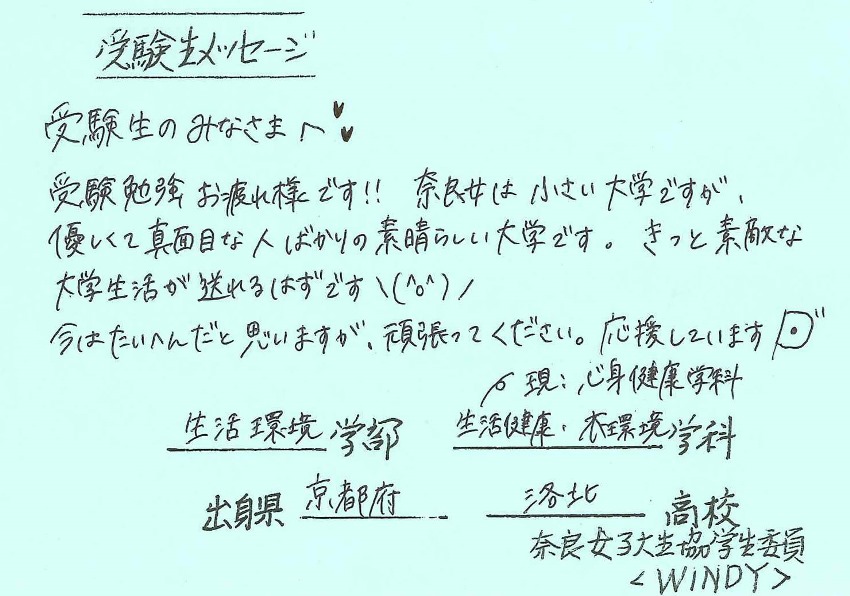 受験生メッセージ
受験生のみなさまへ
受験勉強お疲れ様です!! 奈良女は小さい大学ですが、
優しくて真面目な人ばかりの素晴らしい大学です。きっと素敵な
大学生活が送れるはずです\(^o^)/
今はたいへんだと思いますが、頑張ってください。応援しています
現:心身健康学科
生活環境学部 生活健康・衣環境学科
出身県 京都府 洛北 高校
奈良女子大生協学生委員
<WINDY>